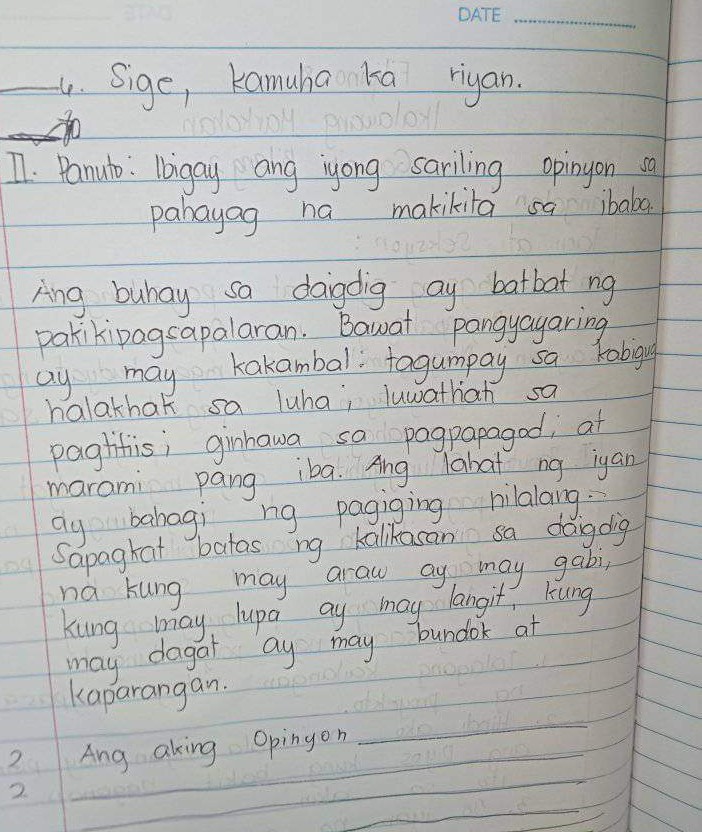 DATE
4. Sige, kamuha ka riyan.
II. Panuto: Ibigay ang iyong sariling opinyon sa
pahayag na makikita sa ibaba.
Ang buhay sa daigdig ay batbat ng
pakikipagsapalaran. Bawat pangyayaring
ay may kakambal: tagumpay sa kabigua
halakhak sa luha; luwathati sa
pagtitiis; ginhawa sa pagpapagod; at
marami pang iba. Ang lahat ng iyan
ay bahagi ng pagiging nilalang.
Sapagkat batas ng kalikasan sa daigdig
na kung may araw ay may gabi,
kung may lupa ay may langit, kung
may dagat ay may bundok at
kaparangan.
2 Ang aking Opinyon
2